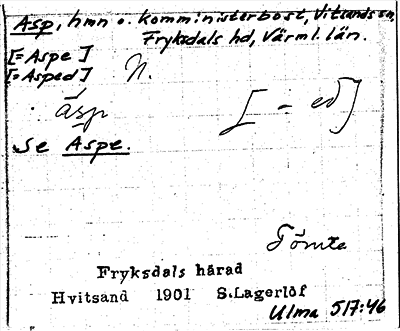 Asp, hmn o. komministerbost, Vitsands sn,
Fryksdals hd, Värml. län.
[= Aspe]
[= Asped] N.
åsp [- ed]
Se Aspe.
Tömta
Fryksdals härad
Hvitsand 1901 S.Lagerlöf
Ulma 517:46